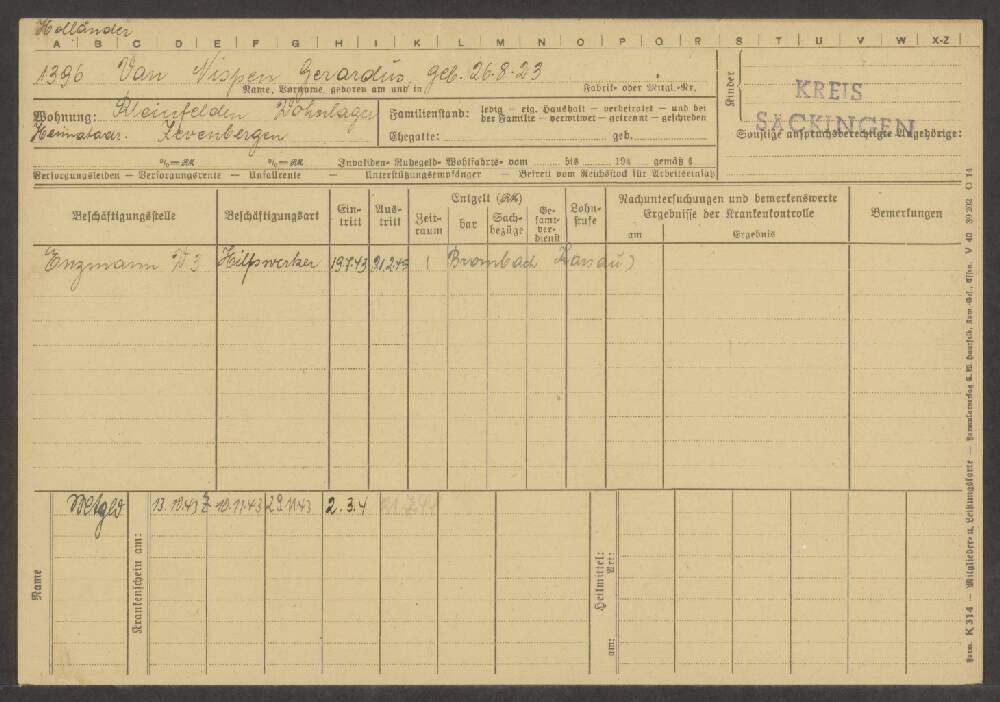 Holländer
A B C D E F G H I K L M N O P Q R S T U V W X-Z
1396 Van Nispen Gerardus, geb. 26.8.23
Name, Vorname, geboren am und in
Fabrik- oder Mitgl.-Nr.
Kinder
KREIS
SÄCKINGEN
Wohnung: Rheinfelden Wohnlager
Heimatadr. Zevenbergen
Familienstand: ledig — eig. Haushalt — verheiratet — und bei
der Familie — verwitwet — getrennt — geschieden
Ehegatte: geb.
Sonstige anspruchsberechtigte Angehörige:
%=RM %=RM Invaliden- Ruhegeld- Wohlfahrts- vom bis 194 gemäß §
Versorgungsleiden — Versorgungsrente — Unfallrente — Unterstützungsempfänger — Befreit vom Reichsstock für Arbeitseinsatz
Beschäftigungsstelle
Beschäftigungsart
Ein-
tritt
Aus-
tritt
Entgelt (RM)
Zeit-
raum
bar
Sach-
bezüge
Ge-
samt-
ver-
dienst
Lohn-
stufe
Nachuntersuchungen und bemerkenswerte
Ergebnisse der Krankenkontrolle
am Ergebnis
Bemerkungen
Enzmann W 3 Hilfswerker 19.7.43 21.2.45 ( Brombach Karsau )
Name
Krankenschein am:
13.10.43 Z 10.11.43 29.11.43 2.3.4
Heilmittel:
Art:
am:
Form. K 314 — Mitglieder- u. Leistungskarte — Formularverlag G. W. V 40 39202 C 14